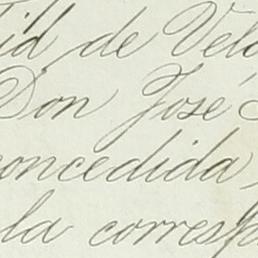 id de Vela
Don José
concedida,
la corresp